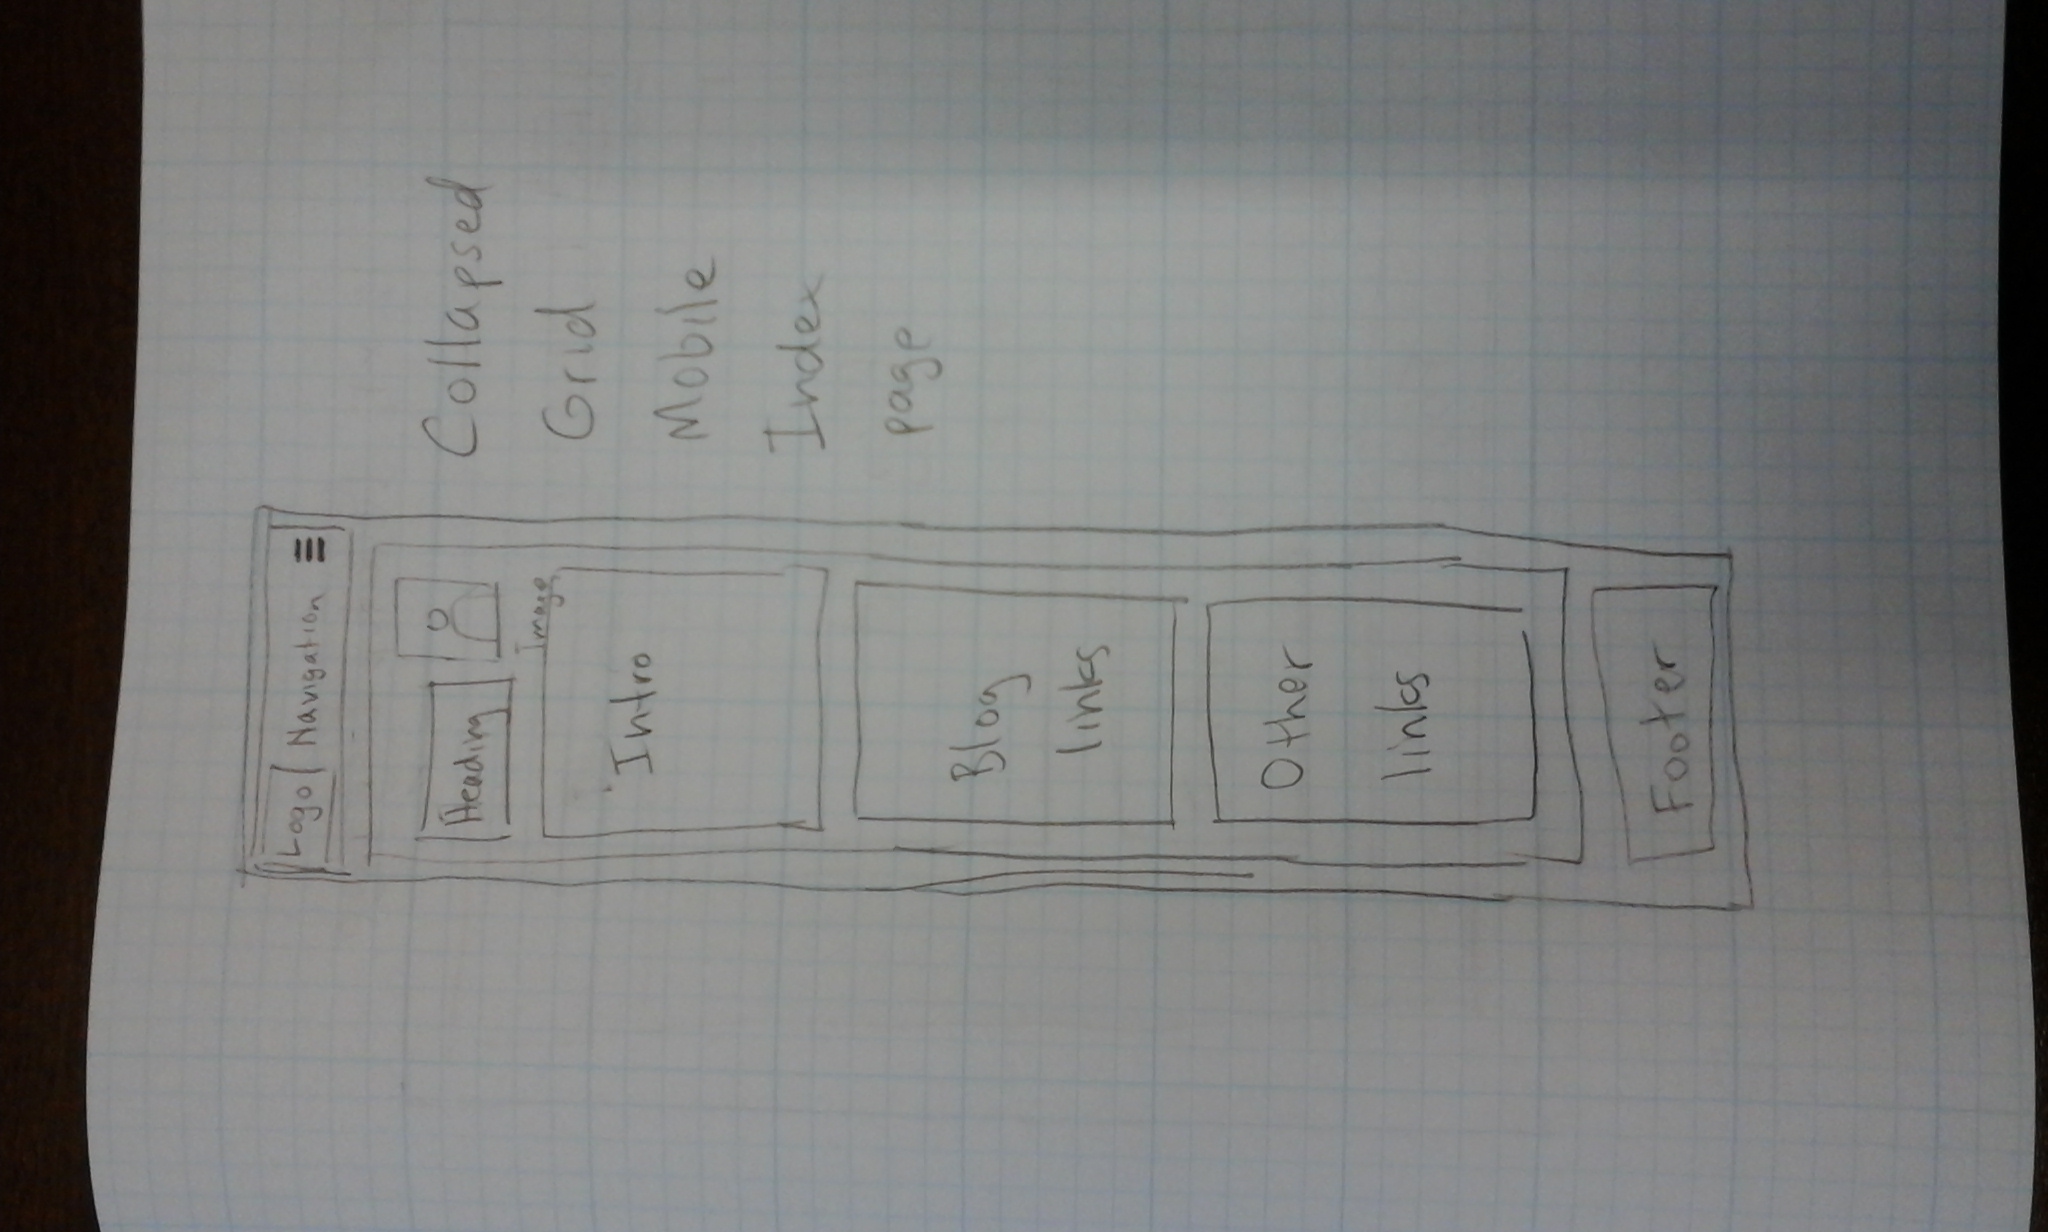 Logo Navigation
Heading
Image
Intro
Blog
links
Other
links
Footer
Collapsed
Grid
Mobile
Index
page